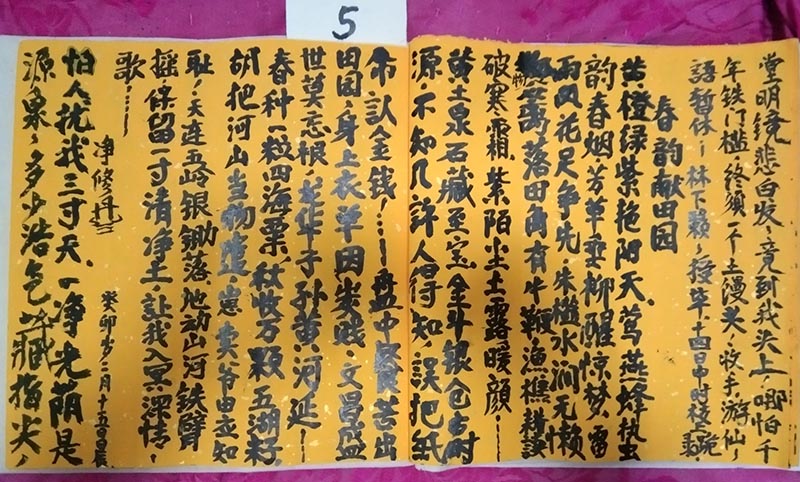 5
堂明镜悲白发，竟到我头上，哪怕千
年铁门槛，终须一个土馒头，收手游仙，
语暂休！林下赖，授毕，十四日申时
春韵献田园
黄橙绿紫艳阳天，莺燕蜂执虫
韵春烟，芳草垂柳醒惊梦，雷
雨风花足争先，朱槛水涧无懒
落田角有牛鞭，渔樵耕读
破寒霜，紫陌尘土露暖颜！……
黄土泉石藏至宝，金斗银仓古时
源，不知几许人得知，误把纸
币认金钱！……盘中餐苦出
田园，身上衣单因炭贱，文昌盛
世莫忘根，龙华子孙黄河延——
春种一粒四海粟，秋收万颗五湖籽，
胡把河山当物造，崽卖爷田立知
耻，天连五岭银锄落，地动山河铁臂
摇，保留一寸清净土，让我入冥深情，
歌……！
净修授
癸卯岁二月十五日晨
怕人扰我三寸天，一净光荫是
源泉，多少浩气藏指尖，